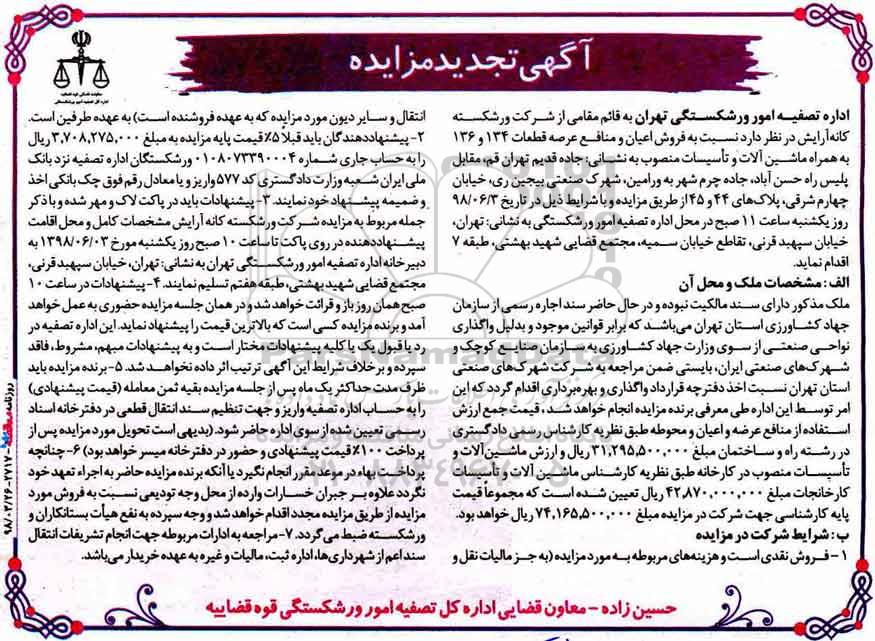 آگهی تجدید مزایده
اداره تصفیه امور ورشکستگی تهران به قائم مقامی از شرکت ورشکسته
کانه آرایش در نظر دارد نسبت به فروش اعیان و منافع عرصه قطعات ۱۳۴ و ۱۳۶
به همراه ماشین آلات و تأسیسات منصوب به نشانی: جاده قدیم تهران قم، مقابل
پلیس راه حسن آباد، جاده چرم شهر به ورامین، شهرک صنعتی بیجین ری، خیابان
چهارم شرقی، پلاک‌های ۴۴ و ۴۵ از طریق مزایده و با شرایط ذیل در تاریخ ۹۸/۰۶/۳
روز یکشنبه ساعت ۱۱ صبح در محل اداره تصفیه امور ورشکستگی به نشانی: تهران،
خیابان سپهبد قرنی، تقاطع خیابان سمیه، مجتمع قضایی شهید بهشتی، طبقه ۷
اقدام نماید.
الف: مشخصات ملک و محل آن
ملک مذکور دارای سند مالکیت نبوده و در حال حاضر سند اجاره رسمی از سازمان
جهاد کشاورزی استان تهران می‌باشد که برابر قوانین موجود و بدلیل واگذاری
نواحی صنعتی از سوی وزارت جهاد کشاورزی به سازمان صنایع کوچک و
شهرک‌های صنعتی ایران، بایستی ضمن مراجعه به شرکت شهرک‌های صنعتی
استان تهران نسبت اخذ دفترچه قرارداد واگذاری و بهره‌برداری اقدام گردد که این
امر توسط این اداره طی معرفی برنده مزایده انجام خواهد شد، قیمت جمع ارزش
استفاده از منافع عرضه و اعیان و محوطه طبق نظریه کارشناس رسمی دادگستری
در رشته راه و ساختمان مبلغ ۳۱,۲۹۵,۵۰۰,۰۰۰ ریال و ارزش ماشین‌آلات و
تأسیسات منصوب در کارخانه طبق نظریه کارشناس ماشین آلات و تأسیسات
کارخانجات مبلغ ۴۲,۸۷۰,۰۰۰,۰۰۰ ریال تعیین شده است که مجموعاً قیمت
پایه کارشناسی جهت شرکت در مزایده مبلغ ۷۴,۱۶۵,۵۰۰,۰۰۰ ریال خواهد بود.
ب: شرایط شرکت در مزایده
۱- فروش نقدی است و هزینه‌های مربوطه به مورد مزایده (به جز مالیات نقل و
انتقال و سایر دیون مورد مزایده که به عهده فروشنده است) به عهده طرفین است.
۲- پیشنهاددهندگان باید قبلاً ۵٪ قیمت پایه مزایده به مبلغ ۳,۷۰۸,۲۷۵,۰۰۰ ریال
را به حساب جاری شماره ۰۱۰۸۰۷۳۳۹۰۰۰۴ ورشکستگان اداره تصفیه نزد بانک
ملی ایران شعبه وزارت دادگستری کد ۵۷۷ واریز و یا معادل رقم فوق چک بانکی اخذ
و ضمیمه پیشنهاد خود نمایند. ۳- پیشنهادات باید در پاکت لاک و مهر شده و با ذکر
جمله مربوط به مزایده شرکت ورشکسته کانه آرایش مشخصات کامل و محل اقامت
پیشنهاددهنده در روی پاکت تا ساعت ۱۰ صبح روز یکشنبه مورخ ۱۳۹۸/۰۶/۰۳ به
دبیرخانه اداره تصفیه امور ورشکستگی تهران به نشانی: تهران، خیابان سپهبد قرنی،
مجتمع قضایی شهید بهشتی، طبقه هفتم تسلیم نمایند. ۴- پیشنهادات در ساعت ۱۰
صبح همان روز باز و قرائت خواهد شد و در همان جلسه مزایده حضوری به عمل خواهد
آمد و برنده مزایده کسی است که بالاترین قیمت را پیشنهاد نماید. این اداره تصفیه در
رد یا قبول یک یا کلیه پیشنهادات مختار است و به پیشنهادات مبهم، مشروط، فاقد
سپرده و برخلاف شرایط این آگهی ترتیب اثر داده نخواهد شد. ۵- برنده مزایده باید
ظرف مدت حداکثر یک ماه پس از جلسه مزایده بقیه ثمن معامله (قیمت پیشنهادی)
را به حساب اداره تصفیه واریز و جهت تنظیم سند انتقال قطعی در دفترخانه اسناد
رسمی تعیین شده از سوی اداره حاضر شود. (بدیهی است تحویل مورد مزایده پس از
پرداخت ۱۰۰٪ قیمت پیشنهادی و حضور در دفترخانه میسر خواهد بود) ۶- چنانچه
پرداخت بهاء در موعد مقرر انجام نگیرد یا آنکه برنده مزایده حاضر به اجراء تعهد خود
نگردد علاوه بر جبران خسارات وارده از محل وجه تودیعی نسبت به فروش مورد
مزایده از طریق مزایده مجدد اقدام خواهد شد و وجه سپرده به نفع هیأت بستانکاران و
ورشکسته ضبط می‌گردد. ۷- مراجعه به ادارات مربوطه جهت انجام تشریفات انتقال
سند اعم از شهرداری‌ها، اداره ثبت، مالیات و غیره به عهده خریدار می‌باشد.
حسین زاده - معاون قضایی اداره کل تصفیه امور ورشکستگی قوه قضاییه
ParsNamadData